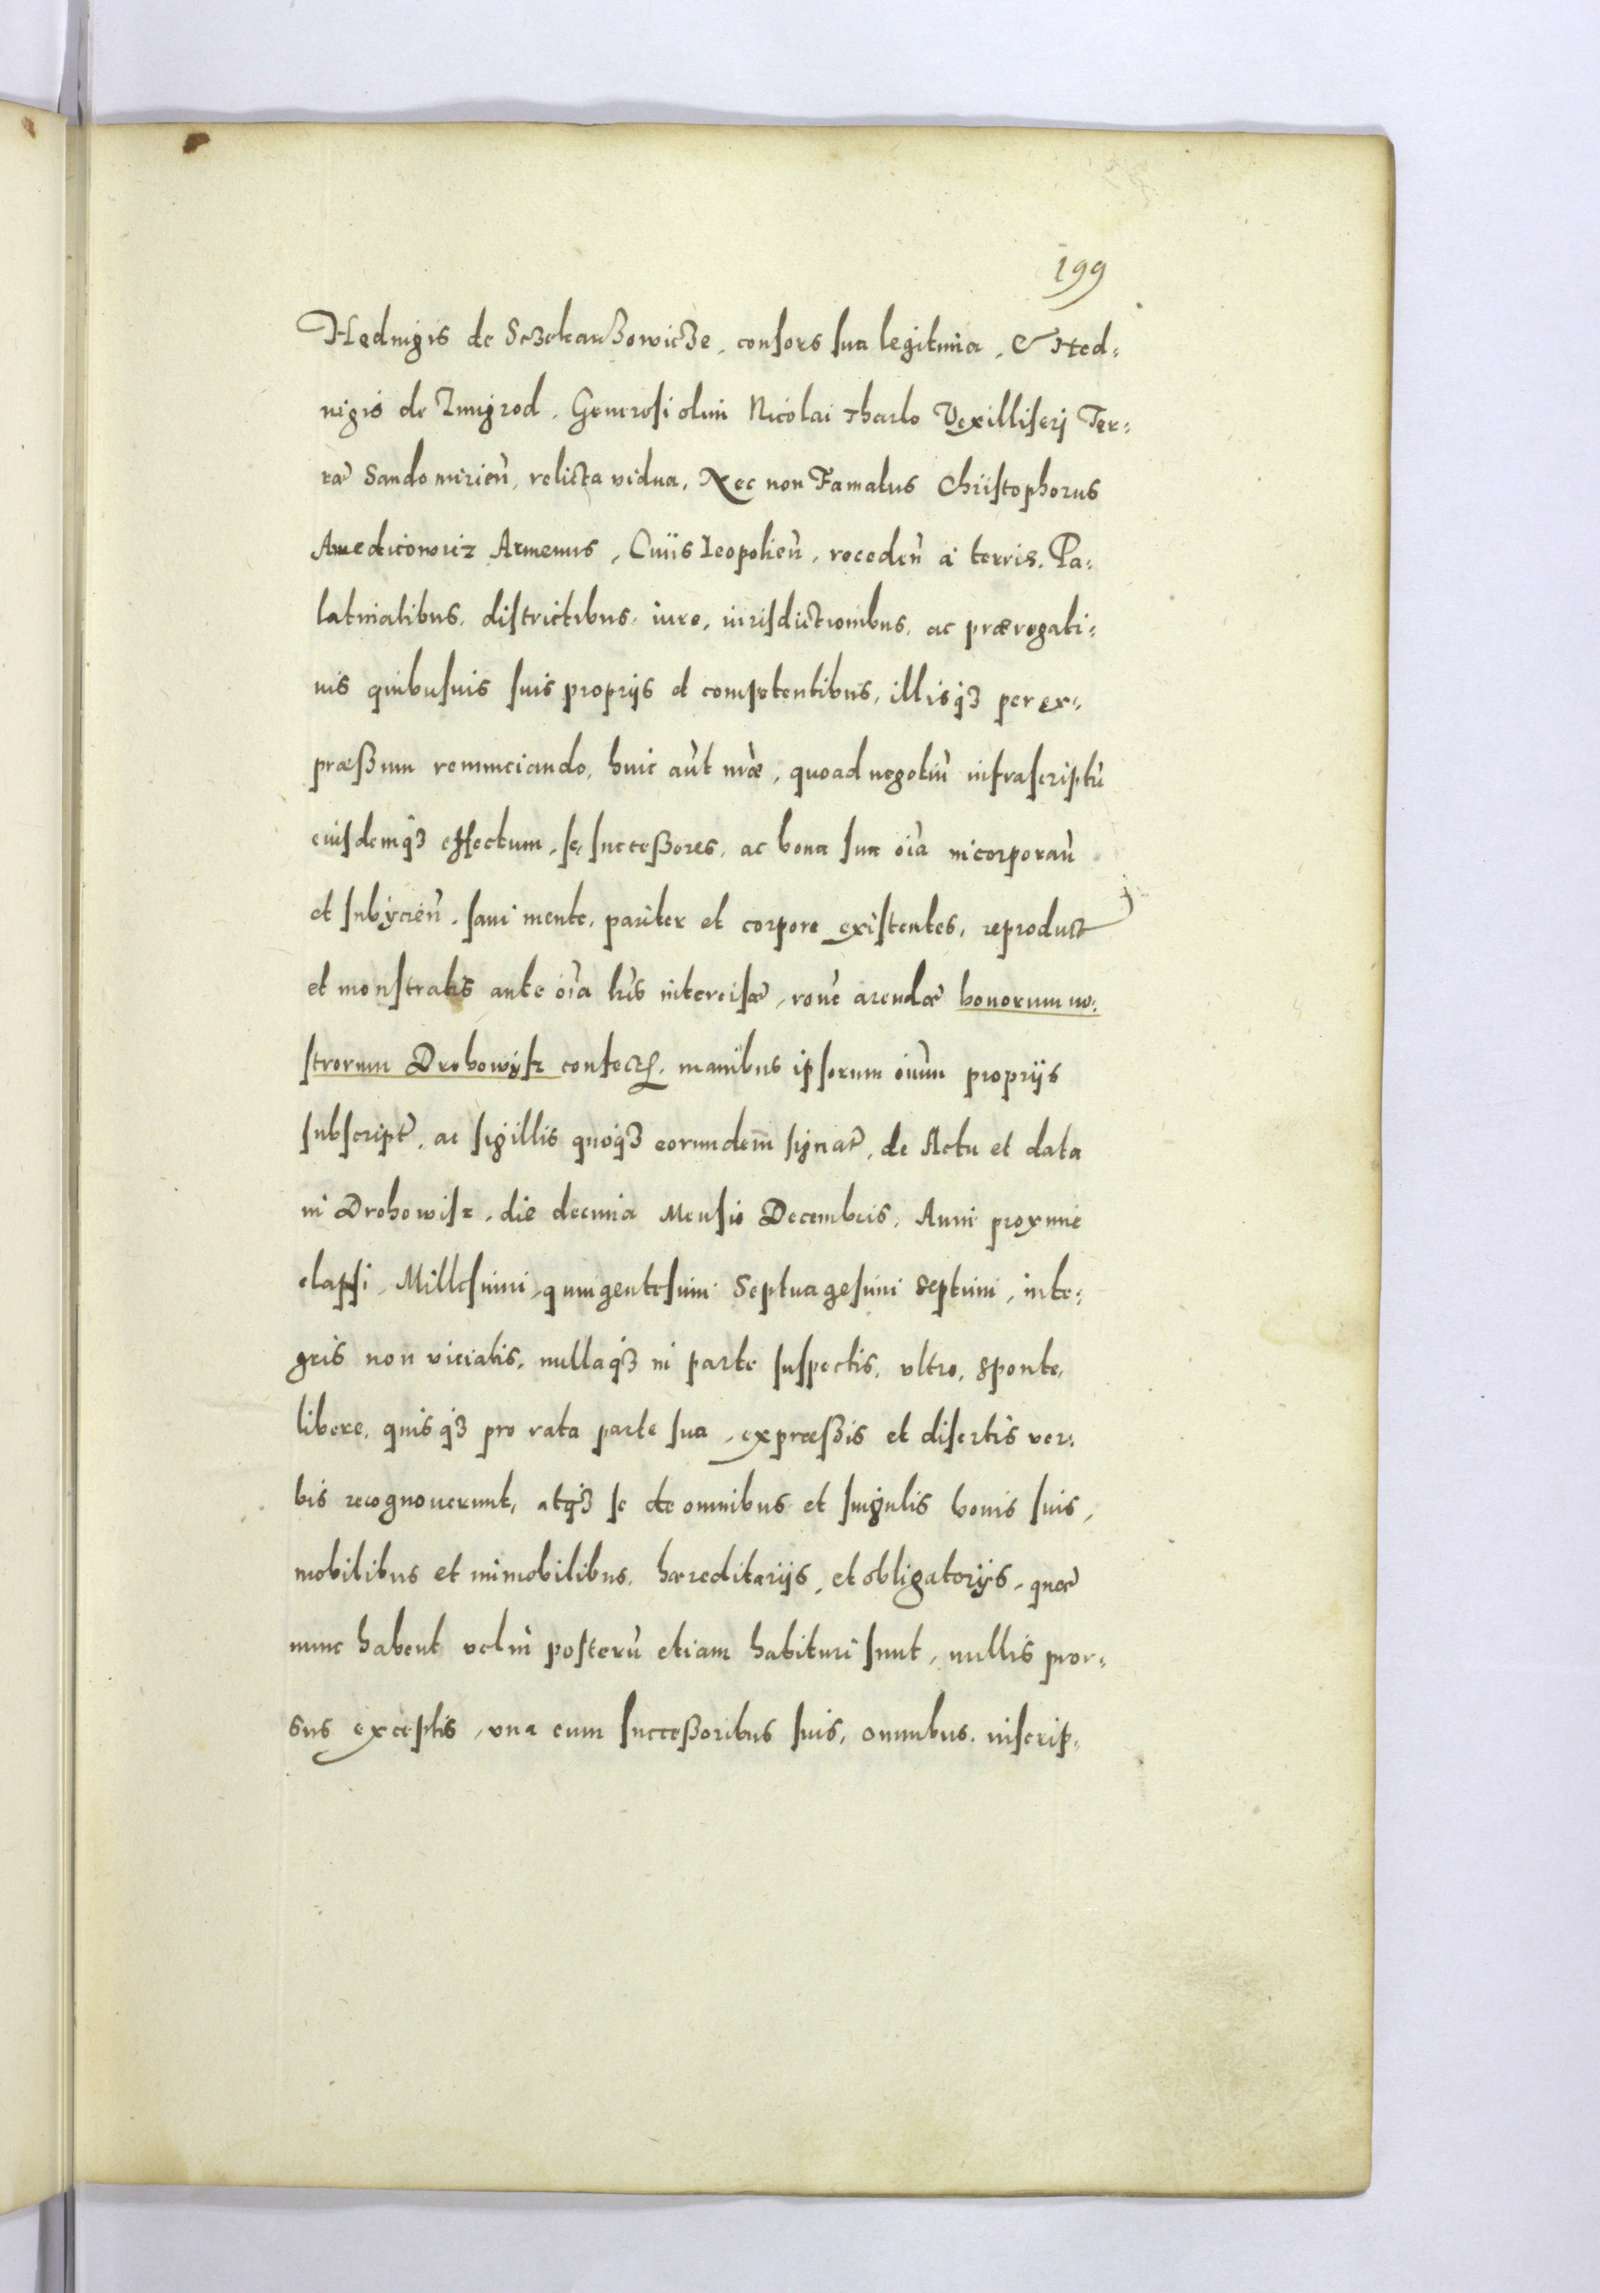 199
Heduigis de Sczekarzowicze, consors sua legitima, & Hed=
uigis de Zmigrod, Generosi olim Nicolai Tharlo Vexilliferj Ter=
ræ Sandomirien̄, relicta vidua, Nec non Famatus Christophorus
Amedicowicz Armenus, Ciuis Leopolien̄, receden̄ à terris, Pa=
latinatibus, districtibus, iure, iurisdictionibus, ac prærogati=
uis quibusuis suis proprijs et competentibus, illisq3 per ex=
præssum renunciando, huic aūt nr̄æ, quoad negotiū infrascriptū
eiusdemq3 effectum, se, successores, ac bona sua oīa incorporan̄
et subijcien̄, sani mente, pariter et corpore existentes, reproduct
et monstratis ante oīa lr̄is intercisæ, rōne arendæ bonorum no=
strorum Drohowisz confect, manibus ipsorum oīum proprijs
subscript, ac sigillis quoq3 eorundem signat, de Actu et data
in Drohowisz, die decima Mensis Decembris, Anni proxime
elapsi, Millesimi, quingentesimi Septuagesimi Septimi, inte=
gris non viciatis, nullaq3 in parte suspectis, vltro, sponte,
libere, quisq3 pro rata parte sua, expræssis et disertis ver=
bis recognouerunt, atq3 se de omnibus et singulis bonis suis,
mobilibus et immobilibus, hæreditarijs, et obligatorijs, quæ
nunc habent vel in posterū etiam habituri sunt, nullis pror=
sus exceptis, vna cum successoribus suis, omnibus, inscrip=